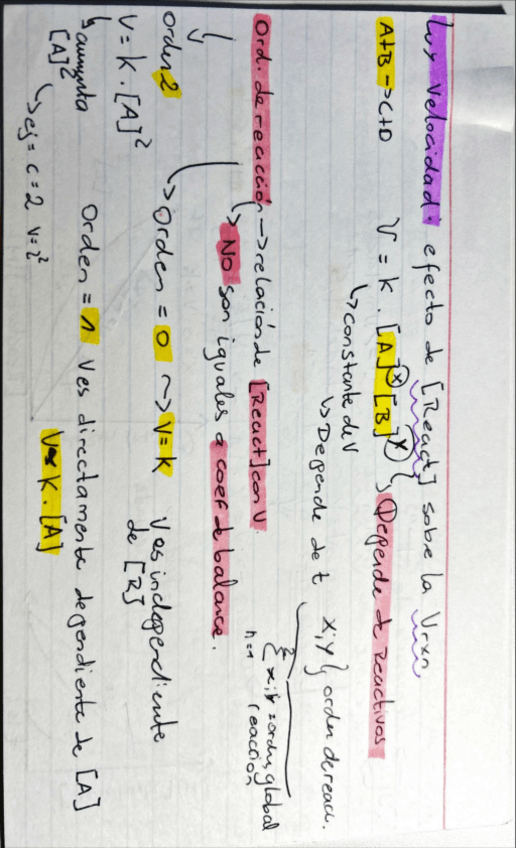 Ley Velocidad: efecto de [React] sobre la Vrxn
A+B → C+D V = k . [A]ˣ [B]ʸ } Depende de Reactivos
↳ constante de V
↳ Depende de t x;y } orden de reacc.
Ord. de reacción → relación de [React] con V.
↳ No son iguales a coef de balance.
x;y = orden global
reacción
n=1
Orden = 0 ~> V = K V es independiente
de [R]
orden 2
V = k . [A]²
↳ aumenta
[A]²
↳ ej = C = 2 V = 2²
Orden = 1 V es directamente dependiente de [A]
V = K . [A]